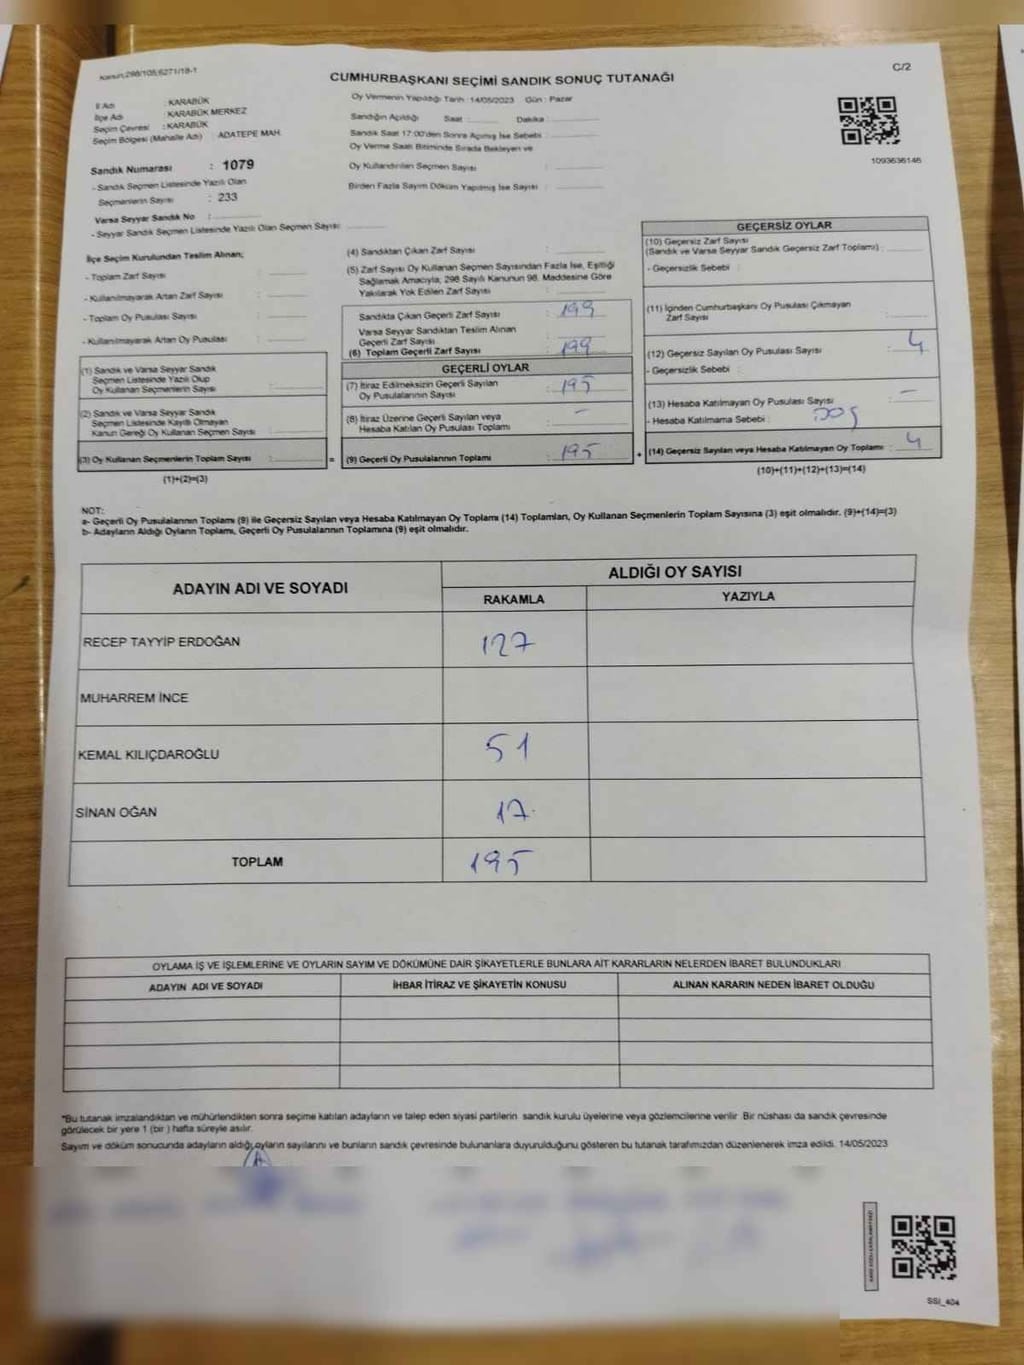 Kanun;298/105;6271/18-1
CUMHURBAŞKANI SEÇİMİ SANDIK SONUÇ TUTANAĞI
C/2
İl Adı : KARABÜK
İlçe Adı : KARABÜK MERKEZ
Seçim Çevresi : KARABÜK
Seçim Bölgesi (Mahalle Adı) : ADATEPE MAH.
Sandık Numarası : 1079
- Sandık Seçmen Listesinde Yazılı Olan
Seçmenlerin Sayısı : 233
Varsa Seyyar Sandık No :
- Seyyar Sandık Seçmen Listesinde Yazılı Olan Seçmen Sayısı :
Oy Vermenin Yapıldığı Tarih : 14/05/2023 Gün : Pazar
Sandığın Açıldığı Saat : Dakika :
Sandık Saat 17:00'den Sonra Açılmış İse Sebebi :
Oy Verme Saati Bitiminde Sırada Bekleyen ve
Oy Kullandırılan Seçmen Sayısı :
Birden Fazla Sayım Döküm Yapılmış İse Sayısı :
1093636146
İlçe Seçim Kurulundan Teslim Alınan;
- Toplam Zarf Sayısı :
- Kullanılmayarak Artan Zarf Sayısı :
- Toplam Oy Pusulası Sayısı :
- Kullanılmayarak Artan Oy Pusulası :
(1) Sandık ve Varsa Seyyar Sandık
Seçmen Listesinde Yazılı Olup
Oy Kullanan Seçmenlerin Sayısı :
(2) Sandık ve Varsa Seyyar Sandık
Seçmen Listesinde Kayıtlı Olmayan
Kanun Gereği Oy Kullanan Seçmen Sayısı :
(3) Oy Kullanan Seçmenlerin Toplam Sayısı :
(1)+(2)=(3)
=
(4) Sandıktan Çıkan Zarf Sayısı :
(5) Zarf Sayısı Oy Kullanan Seçmen Sayısından Fazla İse, Eşitliği
Sağlamak Amacıyla, 298 Sayılı Kanunun 98. Maddesine Göre
Yakılarak Yok Edilen Zarf Sayısı :
Sandıkta Çıkan Geçerli Zarf Sayısı : 199
Varsa Seyyar Sandıktan Teslim Alınan
Geçerli Zarf Sayısı :
(6) Toplam Geçerli Zarf Sayısı : 199
GEÇERLİ OYLAR
(7) İtiraz Edilmeksizin Geçerli Sayılan
Oy Pusulalarının Sayısı : 195
(8) İtiraz Üzerine Geçerli Sayılan veya
Hesaba Katılan Oy Pusulası Toplamı : -
(9) Geçerli Oy Pusulalarının Toplamı : 195
+
GEÇERSİZ OYLAR
(10) Geçersiz Zarf Sayısı
(Sandık ve Varsa Seyyar Sandık Geçersiz Zarf Toplamı) :
- Geçersizlik Sebebi :
(11) İçinden Cumhurbaşkanı Oy Pusulası Çıkmayan
Zarf Sayısı :
(12) Geçersiz Sayılan Oy Pusulası Sayısı : 4
- Geçersizlik Sebebi :
(13) Hesaba Katılmayan Oy Pusulası Sayısı : -
- Hesaba Katılmama Sebebi :
(14) Geçersiz Sayılan veya Hesaba Katılmayan Oy Toplamı : 4
(10)+(11)+(12)+(13)=(14)
NOT:
a- Geçerli Oy Pusulalarının Toplamı (9) ile Geçersiz Sayılan veya Hesaba Katılmayan Oy Toplamı (14) Toplamları, Oy Kullanan Seçmenlerin Toplam Sayısına (3) eşit olmalıdır. (9)+(14)=(3)
b- Adayların Aldığı Oyların Toplamı, Geçerli Oy Pusulalarının Toplamına (9) eşit olmalıdır.
ADAYIN ADI VE SOYADI
ALDIĞI OY SAYISI
RAKAMLA YAZIYLA
RECEP TAYYİP ERDOĞAN 127
MUHARREM İNCE
KEMAL KILIÇDAROĞLU 51
SİNAN OĞAN 17
TOPLAM 195
OYLAMA İŞ VE İŞLEMLERİNE VE OYLARIN SAYIM VE DÖKÜMÜNE DAİR ŞİKAYETLERLE BUNLARA AİT KARARLARIN NELERDEN İBARET BULUNDUKLARI
ADAYIN ADI VE SOYADI İHBAR İTİRAZ VE ŞİKAYETİN KONUSU ALINAN KARARIN NEDEN İBARET OLDUĞU
*Bu tutanak imzalandıktan ve mühürlendikten sonra seçime katılan adayların ve talep eden siyasi partilerin sandık kurulu üyelerine veya gözlemcilerine verilir. Bir nüshası da sandık çevresinde
görülecek bir yere 1 (bir) hafta süreyle asılır.
Sayım ve döküm sonucunda adayların aldığı oyların sayılarını ve bunların sandık çevresinde bulunanlara duyurulduğunu gösteren bu tutanak tarafımızdan düzenlenerek imza edildi. 14/05/2023
SSI_404